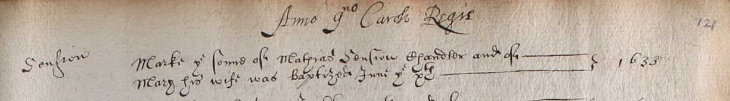 Anno 9no Caroli Regis 121
Marke ye sonne of Mathias Chandler and of 1633
Mary his wife was Baptized June ye